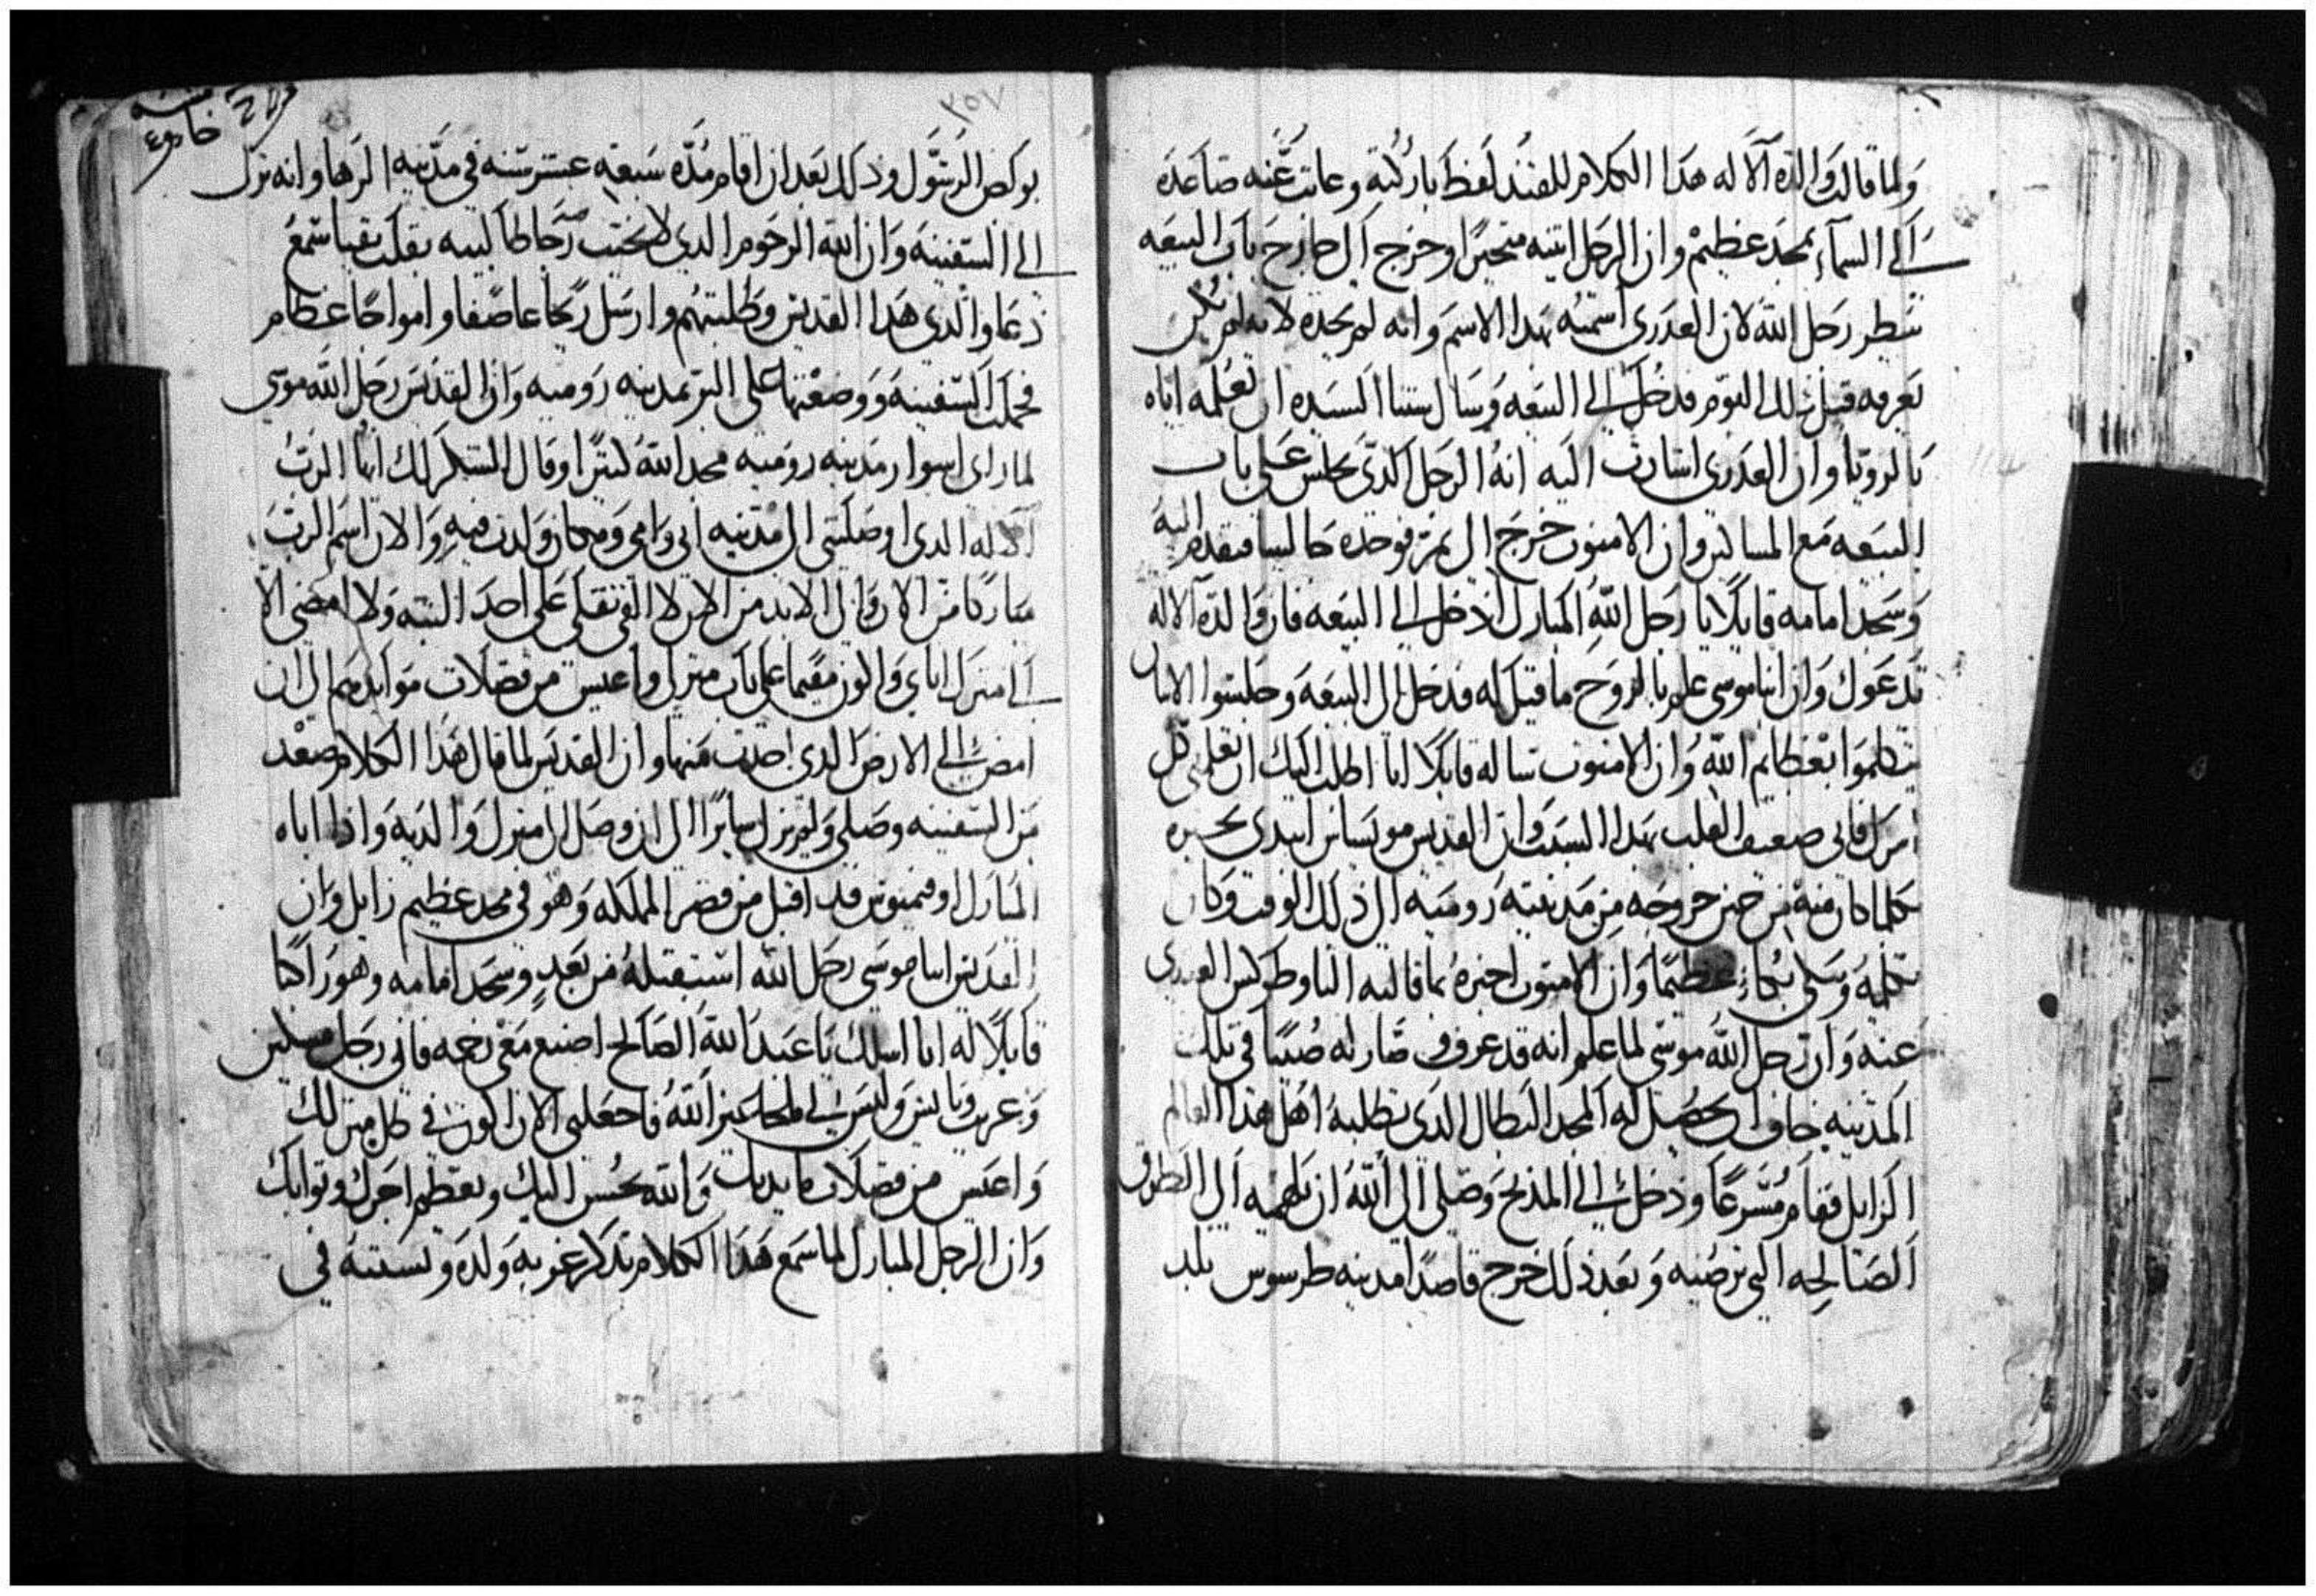 ولما قالت والدة الاله هدا الكلام للقندلفط باركته وعابت عنه صاعده
الى السماء بمجد عظيم وان الرجل انتبه متحيرا وخرج الى خارج باب البيعه
ينطر رجل الله لان العدرى اسمته بهدا الاسم وانه لم يجده لانه لم يكن
يعرفه قبل دلك اليوم فدخل الى البيعه وسال ستنا السيده ان تعلمه اياه
بالرويا وان العدرى اشارت اليه انه الرجل الدى يجلس على باب
البيعه مع المساكين وان الامنوت خرج الى برا فوجده جالسا فتقدم اليه
وسجد امامه قايلا يا رجل الله المبارك ادخل الى البيعه فان والدة الاله
تدعوك وان انبا موسى علم بالروح ما قيل له فدخل الى البيعه وجلسوا الاتنان
يتكلموا بعظايم الله وان الامنوت ساله قايلا انا اطلب اليك ان تعلمنى كل
امرك فانى ضعيف القلب بهدا السبب وان القديس موسياس ابتدى يخبره
بكلما كان منه من حين خروجه من مدينة روميه الى ذلك الوقت وكان
يتكلم وبكى بكاء عظيما وان الامنوت اخبره بما قالته التاوطوكس العدرى
عنه وان رجل الله موسى لما علم انه قد عرف وصار له صيتا فى تلك
المدينه خاف ان يحصل له المجد البطال الدى يطلبه اهل هدا العالم
الزايل فقام مسرعا ودخل الى المذبح وصلى الى الله ان يلهمه الى الطرق
الصالحه التى ترضيه وبعد ذلك خرج قاصدا مدينه طرسوس بلد
٢٥٧
بولص الرسول وذلك بعد ان اقام مده سبعة عشر سنه فى مدينه الرها وانه نزل
الى السفينه وان الله الرحوم الدى لا يخيب رجا طالبيه بقلب نقيا سمع
دعا والدى هدا القديس وطلبتهم وارسل ريحا عاصفا وامواجا عظام
فحملت السفينه ووضعتها على البر بمدينه روميه وان القديس رجل الله موسى
لما راى اسوار مدينه روميه مجد الله كتيرا وقال الشكر لك ايها الرب
الاله الدى اوصلتنى الى مدينه ابى وامى ومكان ولدت فيه والان اسم الرب
مباركا من الان والى الابد من الان لا القى تقلى على احد البته ولا امضى الا
الى منزل اباى واكون مقيما على باب منزله واعيش من فضلات موايدهم الى ان
امضى الى الارض الدى اخدت منها وان القديس لما قال هدا الكلام صعد
من السفينه وصلى ولم يزل سايرا الى ان وصل الى منزل والديه واذا اباه
المبارك اوفيميوس قد اقبل من قصر المملكه وهو فى مجد عظيم زايل وان
القديس انبا موسى رجل الله استقبله من بعد وسجد امامه وهو راكبا
قايلا له انا اسلك يا عبد الله الصالح اصنع معى رحمه فانى رجل مسكين
وغريب وبايس وليس لى ملجا غير الله فاجعلنى الان اكون فى كل منزلك
واعيش من فضلات مايدتك والله يحسن اليك ويعظم اجرك وتوابك
وان الرجل المبارك لما سمع هدا الكلام تدكر غربة ولده ونسيته فى